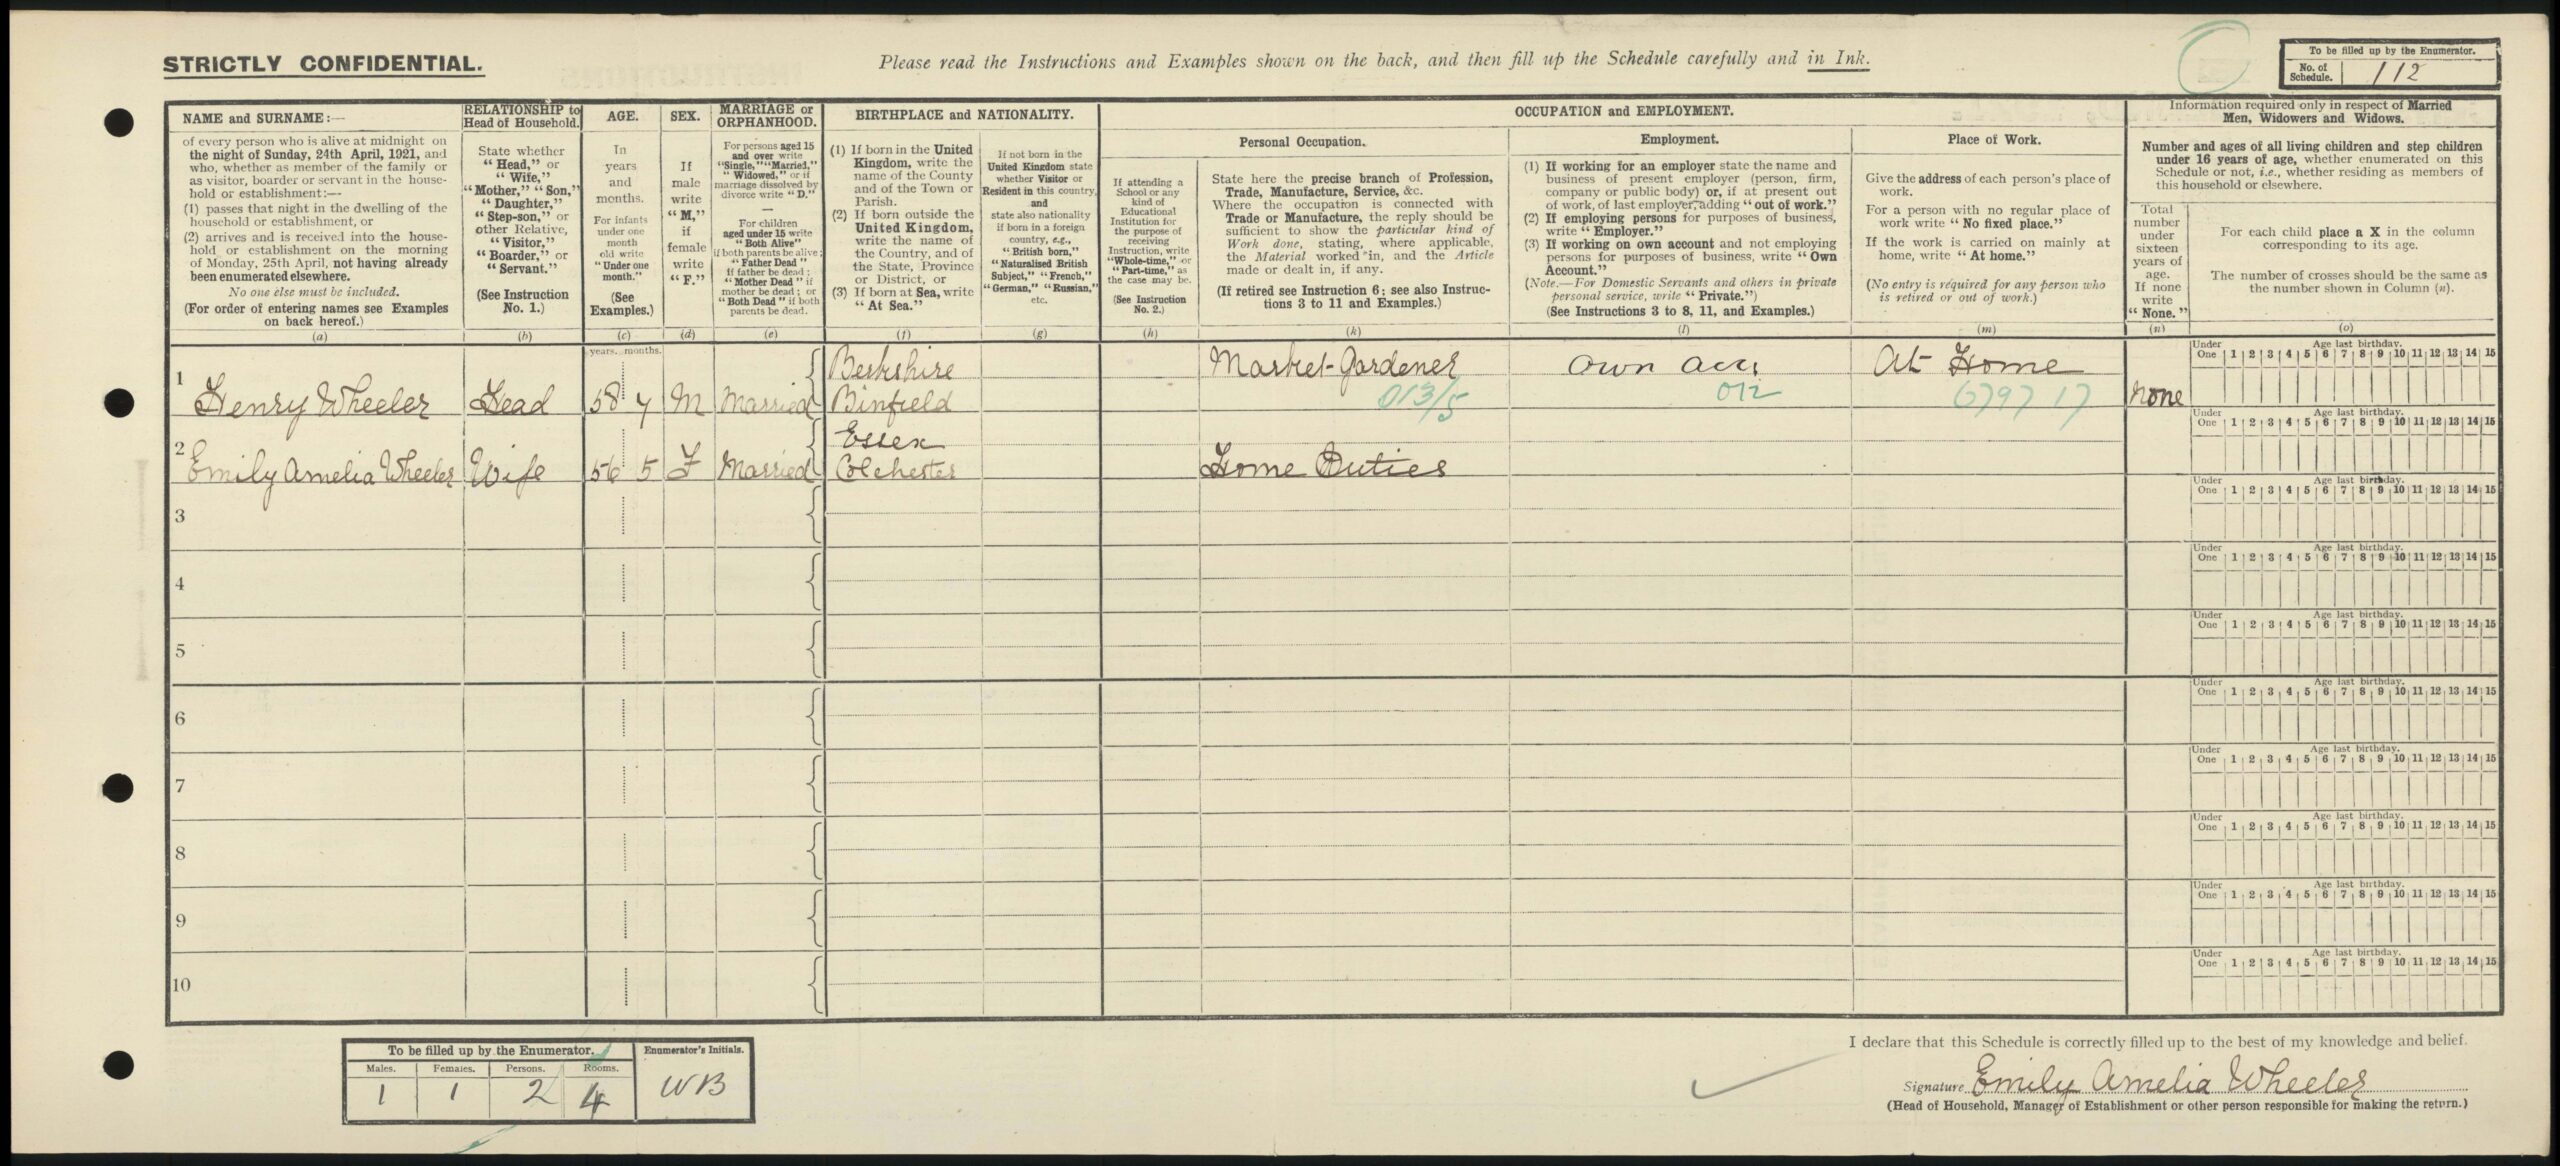 STRICTLY CONFIDENTIAL.
Please read the Instructions and Examples shown on the back, and then fill up the Schedule carefully and in Ink.
To be filled up by the Enumerator.
No. of Schedule. 112
NAME and SURNAME:—
of every person who is alive at midnight on
the night of Sunday, 24th April, 1921, and
who, whether as member of the family or
as visitor, boarder or servant in the house-
hold or establishment:—
(1) passes that night in the dwelling of the
household or establishment, or
(2) arrives and is received into the house-
hold or establishment on the morning
of Monday, 25th April, not having already
been enumerated elsewhere.
No one else must be included.
(For order of entering names see Examples
on back hereof.)
(a)
RELATIONSHIP to
Head of Household.
State whether
"Head," or
"Wife,"
"Mother," "Son,"
"Daughter,"
"Step-son," or
other Relative,
"Visitor,"
"Boarder," or
"Servant."
(See Instruction
No. 1.)
(b)
AGE.
In
years
and
months.
For infants
under one
month
old write
"Under one
month."
(See
Examples.)
(c)
SEX.
If
male
write
"M,"
if
female
write
"F."
(d)
MARRIAGE or
ORPHANHOOD.
For persons aged 15
and over write
"Single," "Married,"
"Widowed," or if
marriage dissolved by
divorce write "D."
—
For children
aged under 15 write
"Both Alive"
if both parents be alive;
"Father Dead"
if father be dead;
"Mother Dead" if
mother be dead; or
"Both Dead" if both
parents be dead.
(e)
BIRTHPLACE and NATIONALITY.
(1) If born in the United
Kingdom, write the
name of the County
and of the Town or
Parish.
(2) If born outside the
United Kingdom,
write the name of
the Country, and of
the State, Province
or District, or
(3) If born at Sea, write
"At Sea."
(f)
If not born in the
United Kingdom state
whether Visitor or
Resident in this country,
and
state also nationality
if born in a foreign
country, e.g.,
"British born,"
"Naturalised British
Subject," "French,"
"German," "Russian,"
etc.
(g)
OCCUPATION and EMPLOYMENT.
If attending a
School or any
kind of
Educational
Institution for
the purpose of
receiving
Instruction, write
"Whole-time," or
"Part-time," as
the case may be.
(See Instruction
No. 2.)
(h)
Personal Occupation.
State here the precise branch of Profession,
Trade, Manufacture, Service, &c.
Where the occupation is connected with
Trade or Manufacture, the reply should be
sufficient to show the particular kind of
Work done, stating, where applicable,
the Material worked in, and the Article
made or dealt in, if any.
(If retired see Instruction 6; see also Instruc-
tions 3 to 11 and Examples.)
(k)
Employment.
(1) If working for an employer state the name and
business of present employer (person, firm,
company or public body) or, if at present out
of work, of last employer, adding "out of work."
(2) If employing persons for purposes of business,
write "Employer."
(3) If working on own account and not employing
persons for purposes of business, write "Own
Account."
(Note.—For Domestic Servants and others in private
personal service, write "Private.")
(See Instructions 3 to 8, 11, and Examples.)
(l)
Place of Work.
Give the address of each person's place of
work.
For a person with no regular place of
work write "No fixed place."
If the work is carried on mainly at
home, write "At home."
(No entry is required for any person who
is retired or out of work.)
(m)
Information required only in respect of Married
Men, Widowers and Widows.
Number and ages of all living children and step children
under 16 years of age, whether enumerated on this
Schedule or not, i.e., whether residing as members of
this household or elsewhere.
Total
number
under
sixteen
years of
age.
If none
write
"None."
(n)
For each child place a X in the column
corresponding to its age.
The number of crosses should be the same as
the number shown in Column (n).
(o)
years. months.
Under One Age last birthday. 1 2 3 4 5 6 7 8 9 10 11 12 13 14 15
1 Henry Wheeler Head 58 7 M Married Berkshire Binfield Market-Gardener Own acc, At Home None
013/5 012
2 Emily Amelia Wheeler Wife 56 5 F Married Essex Colchester Home Duties
Under One Age last birthday. 1 2 3 4 5 6 7 8 9 10 11 12 13 14 15
3
Under One Age last birthday. 1 2 3 4 5 6 7 8 9 10 11 12 13 14 15
4
Under One Age last birthday. 1 2 3 4 5 6 7 8 9 10 11 12 13 14 15
5
Under One Age last birthday. 1 2 3 4 5 6 7 8 9 10 11 12 13 14 15
6
Under One Age last birthday. 1 2 3 4 5 6 7 8 9 10 11 12 13 14 15
7
Under One Age last birthday. 1 2 3 4 5 6 7 8 9 10 11 12 13 14 15
8
Under One Age last birthday. 1 2 3 4 5 6 7 8 9 10 11 12 13 14 15
9
Under One Age last birthday. 1 2 3 4 5 6 7 8 9 10 11 12 13 14 15
10
Under One Age last birthday. 1 2 3 4 5 6 7 8 9 10 11 12 13 14 15
To be filled up by the Enumerator.
Enumerator's Initials.
Males. Females. Persons. Rooms.
1 1 2 4 WB
I declare that this Schedule is correctly filled up to the best of my knowledge and belief.
Signature Emily Amelia Wheeler
(Head of Household, Manager of Establishment or other person responsible for making the return.)